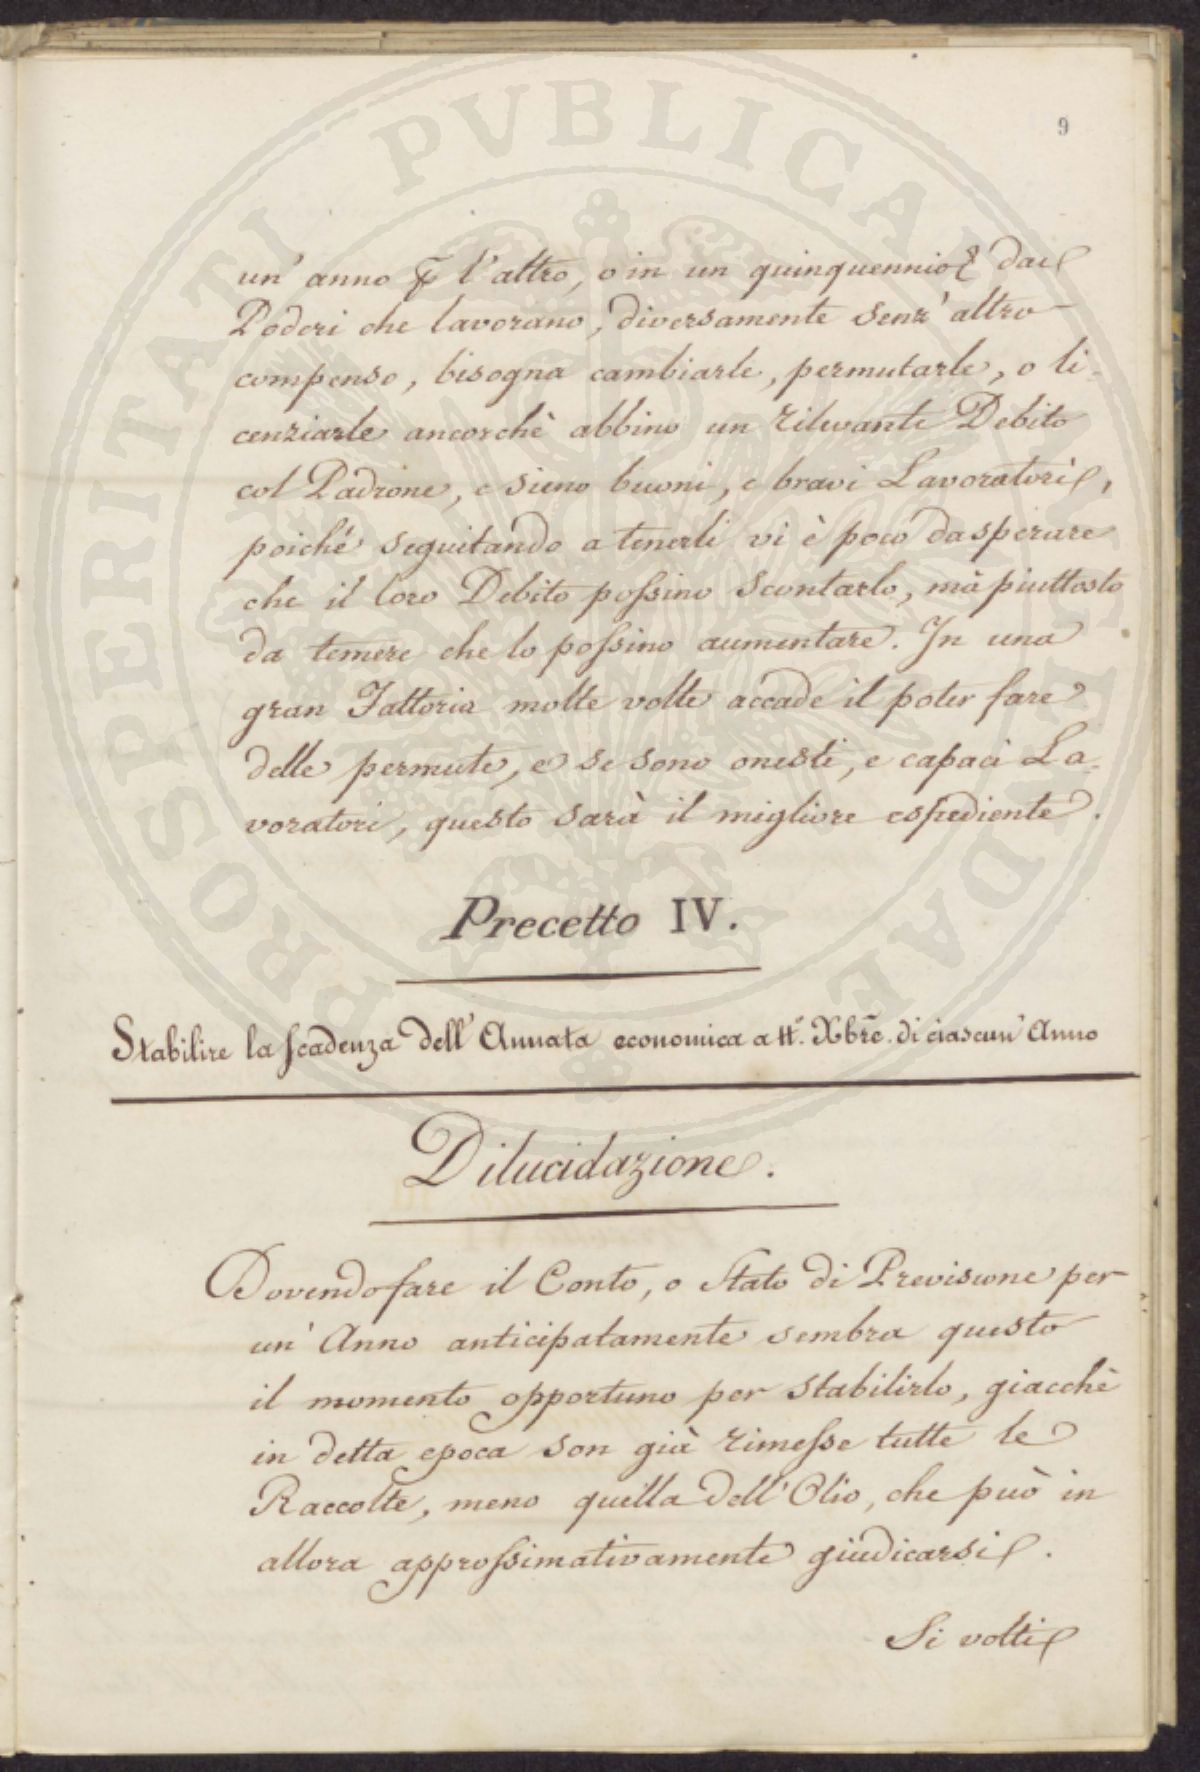 PROSPERITATI PVBLICAE AVGENDAE
9
un' anno p l'altro, o in un quinquennio dai
Poderi che lavorano, diversamente senz' altro
compenso, bisogna cambiarle, permutarle, o li-
cenziarle ancorchè abbino un rilevante Debito
col Padrone, e sieno buoni, e bravi Lavoratori,
poiché seguitando a tenerli vi è poco da sperare
che il loro Debito possino scontarlo, mà piuttosto
da temere che lo possino aumentare. In una
gran Fattoria molte volte accade il poter fare
delle permute, e se sono onesti, e capaci La-
voratori, questo sarà il migliore espediente.
Precetto IV.
Stabilire la scadenza dell' Annata economica a tt.o Xbre. di ciascun' Anno
Dilucidazione.
Dovendo fare il Conto, o Stato di Previsione per
un' Anno anticipatamente sembra questo
il momento opportuno per stabilirlo, giacchè
in detta epoca son già rimesse tutte le
Raccolte, meno quella dell' Olio, che può in
allora approssimativamente giudicarsi.
Si volti